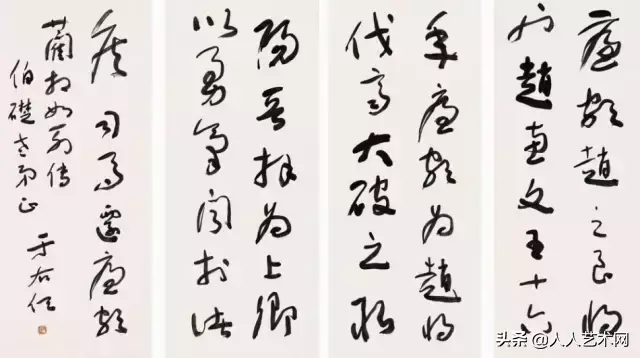 廉頗趙之良將
也趙惠文王十六
年廉頗為趙將
伐齊大破之取
陽晉拜為上卿
以勇氣聞於諸
侯司馬遷廉頗
藺相如列傳
伯礎老弟正
于右任
头条 @人人艺术网